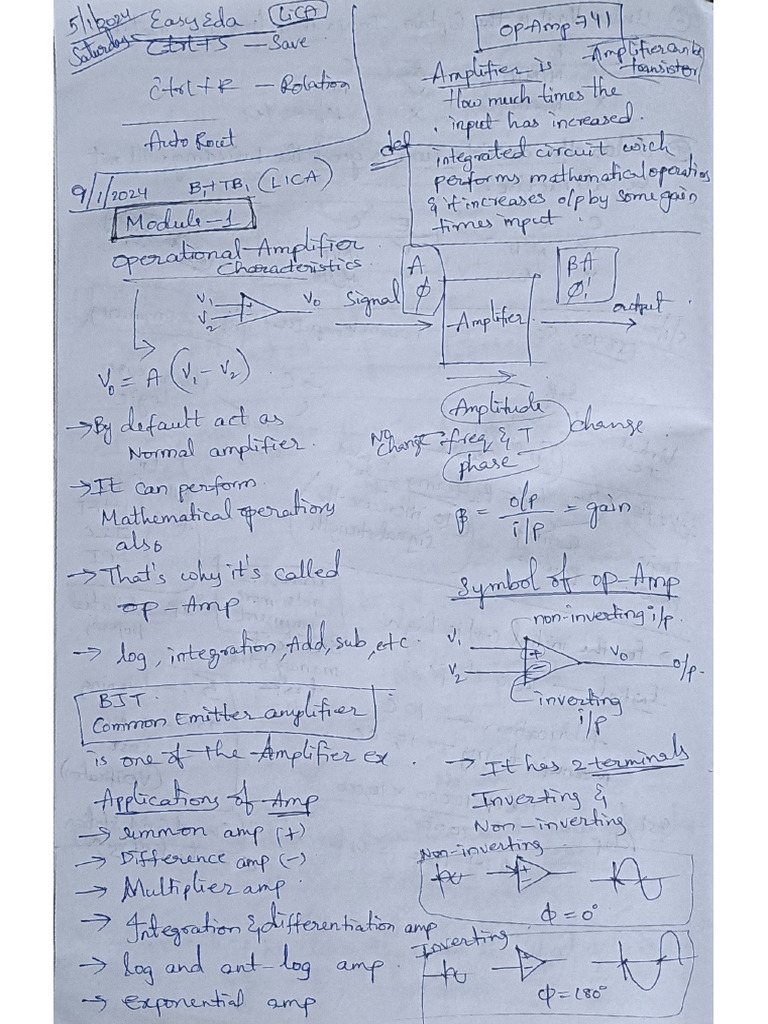 5/1/2024
Saturday
Easy Eda (LICA)
Ctrl+S — Save
Ctrl+R — Rotation
Auto Rout
9/1/2024 B1+TB1 (LICA)
Module-1
Operational-Amplifier
Characteristics
V1
V2
V0
V0 = A (V1 - V2)
→ By default act as
Normal amplifier.
→ It can perform
Mathematical operations
also
→ That's why it's called
op-Amp
→ log, integration, Add, sub, etc.
BJT.
Common Emitter amplifier
is one of the Amplifier ex.
Applications of Amp
→ summon amp (+)
→ Difference amp (-)
→ Multiplier amp.
→ Integration & differentiation amp
→ log and ant-log amp.
→ exponential amp
Op-Amp 741
Amplifier is
How much times the
input has increased.
transistor
def
integrated circuit wich
performs mathematical operations
& it increases o/p by some gain
times input.
Signal
A
ϕ
Amplifier
BA
ϕ'
output
Amplitude
No
Change
freq & T
phase
change
β = o/p / i/p = gain
Symbol of op-Amp
non-inverting i/p.
V1
+
V0
o/p.
V2
-
inverting
i/p
→ It has 2 terminals
Inverting &
Non-inverting
Non-inverting
ϕ = 0°
Inverting
ϕ = 180°